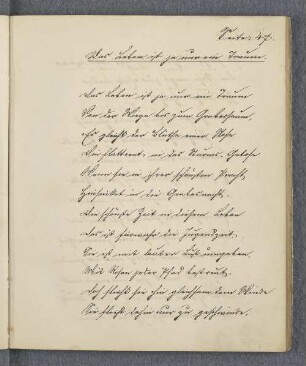 Seite: 47.
Das Leben ist ja nur ein Traum.
Das Leben ist ja nur ein Traum
Von der Wiege bis zum Grabessaum,
Es gleicht der Blüthe einer Rose
Die flattert, in des Sturms-Getose
Wenn sie in ihrer schönsten Pracht,
Hinsinket in die Grabesnacht.
Die schönste Zeit in diesem Leben
Das ist fürwahr die Jugendzeit.
Sie ist mit lauter Lust umgeben
Mit Rosen jeder Pfad bestreut.
Doch flieht sie hin gleichsam dem Winde
Sie flieht dahin nur zu geschwinde.